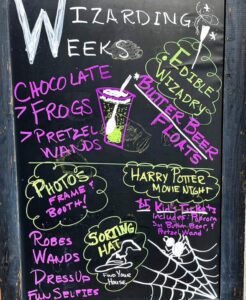 Wizarding
Weeks
Chocolate
> Frogs
> Pretzel
Wands
Edible
Wizadry
Butter Beer
Floats
Photo's
Frame &
Booth!
Harry Potter
Movie Night
$5 Kid's Tickets
Includes: Popcorn
Butter Beer, &
Pretzel Wand
Robes
Wands
DressUp
Fun Selfies
Sorting
Hat
Find Your
House